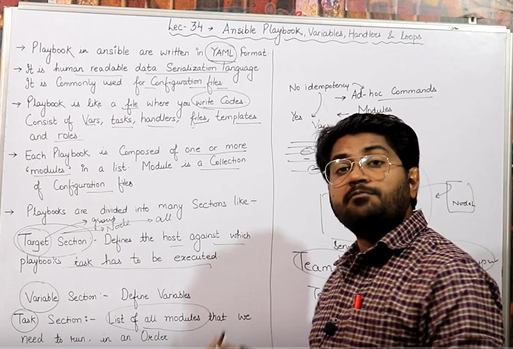 Lec-34 → Ansible Playbook, Variables, Handlers & Loops
→ Playbook in ansible are written in YAML Format
→ It is human readable data Serialization language
It is Commonly used for Configuration files
→ Playbook is like a file where you write Codes
Consist of Vars, tasks, handlers, files, templates
and roles
→ Each Playbook is Composed of one or more
'modules' in a list Module is a Collection
of Configuration files
→ Playbooks are divided into many Sections like:-
group
Node
all
Target Section:- Defines the host against which
playbooks task has to be executed
Variable Section:- Define Variables
Task Section:- List of all modules that we
need to run, in an Order
No idempotency
→ Ad-hoc Commands
Yes
→ Modules
Team